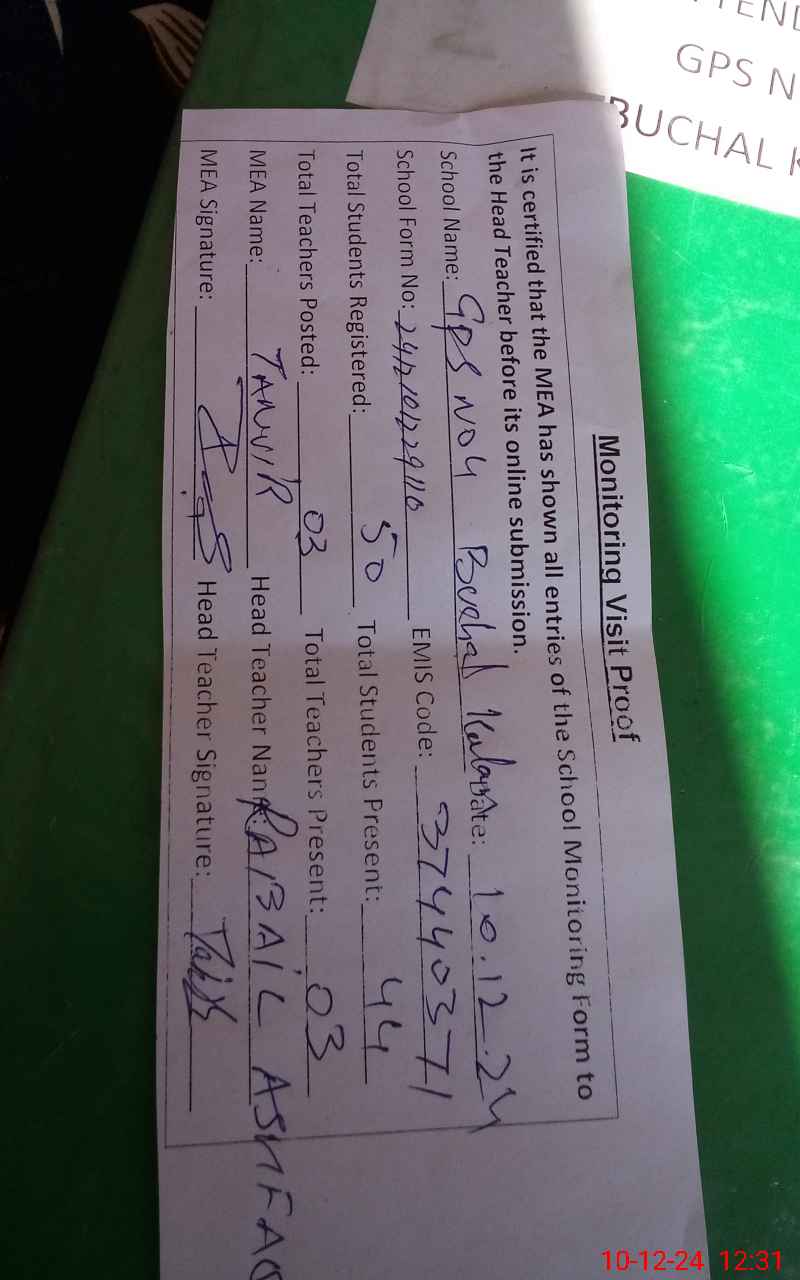 TEND
GPS N
BUCHAL K
Monitoring Visit Proof
It is certified that the MEA has shown all entries of the School Monitoring Form to
the Head Teacher before its online submission.
School Name: GPS NO4 Buchal Kalan Date: 10.12.24
School Form No: EMIS Code: 37440371
Total Students Registered: 50 Total Students Present: 44
Total Teachers Posted: 03 Total Teachers Present: 03
MEA Name: TANVIR Head Teacher Name: RABAIL ASHFAQ
MEA Signature: Head Teacher Signature:
10-12-24 12:31